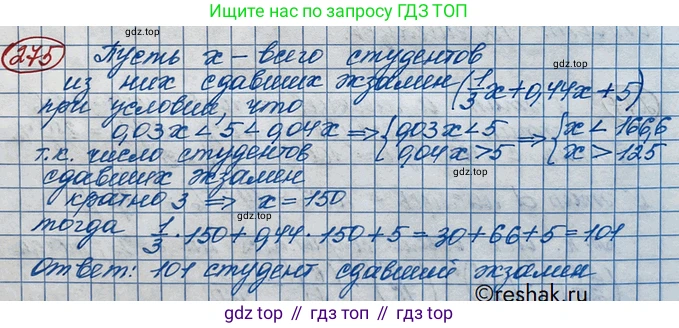 Ищите нас по запросу ГДЗ ТОП
gdz.top
275 Пусть x - всего студентов
из них сдавших экзамен (1/3 x + 0,44x + 5)
при условии, что
0,03x < 5 < 0,04x ⇒ {0,03x < 5 0,04x > 5 ⇒ {x < 166,6 x > 125
т.к. число студентов
сдавших экзамен
кратно 3 ⇒ x = 150
тогда 1/3 · 150 + 0,44 · 150 + 5 = 30 + 66 + 5 = 101
Ответ: 101 студент сдавший экзамен
©reshak.ru
gdz top // гдз топ // gdz.top // гдз топ